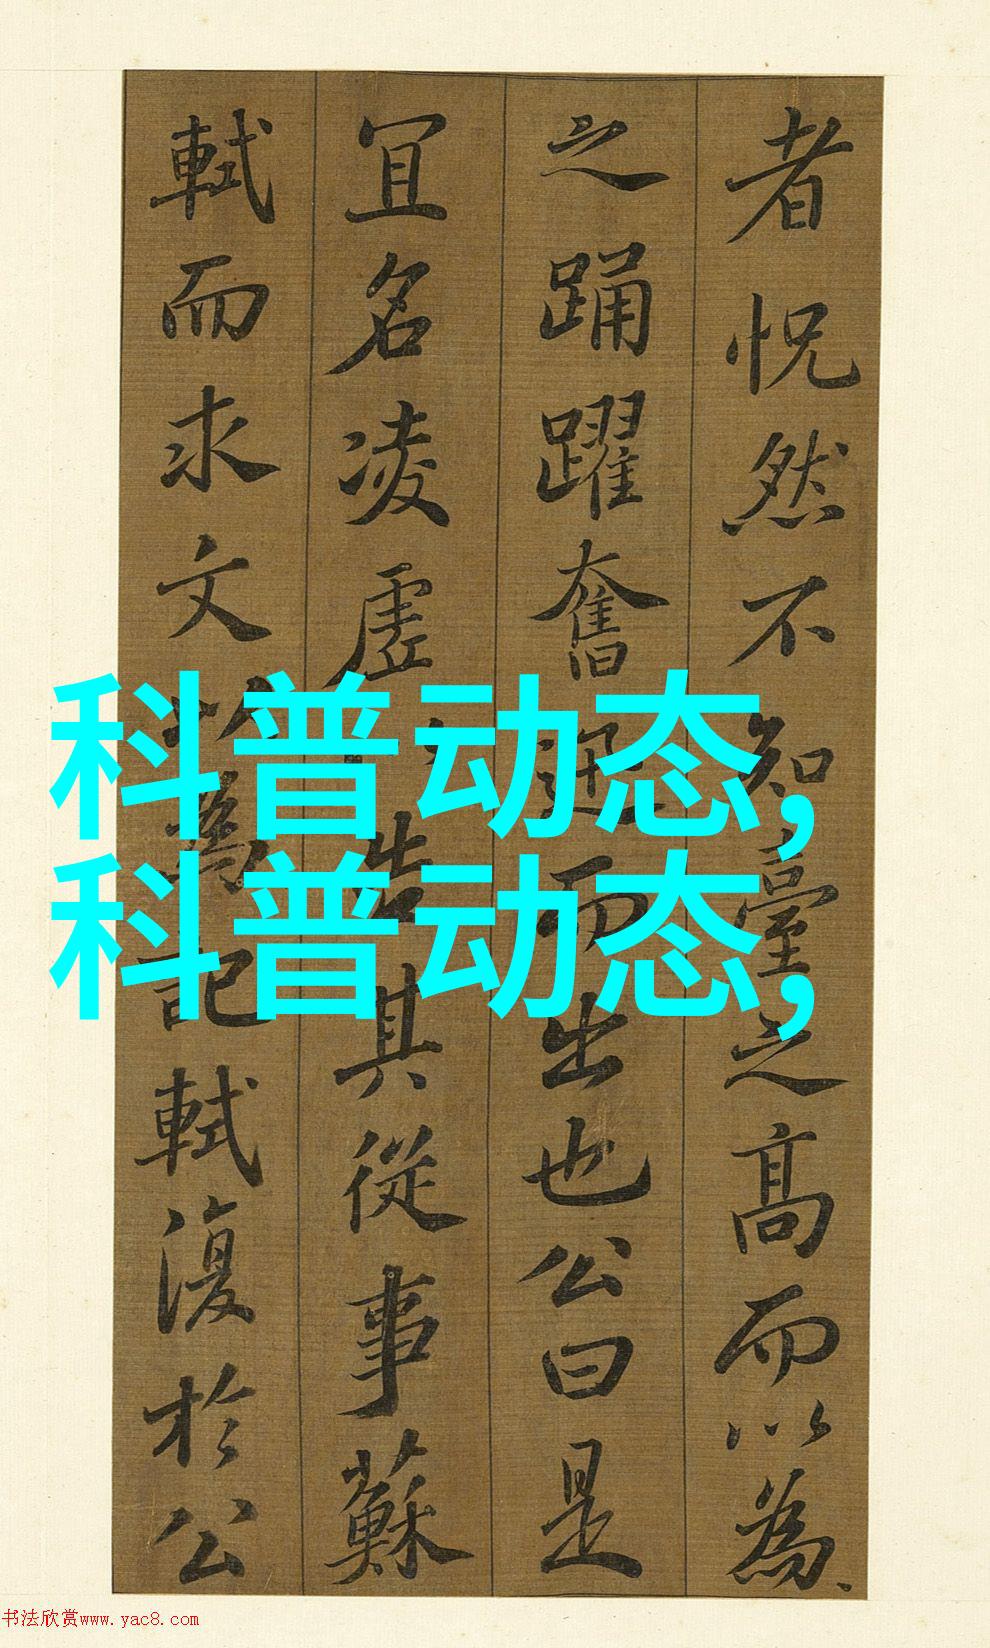 者怳然不知臺之高而以為
之踊躍奮迅而出也公曰是
冝名凌虛以告其從事蘇
軾而求文以為記軾復於公
科普动态,
科普动态,
书法欣赏www.yac8.com